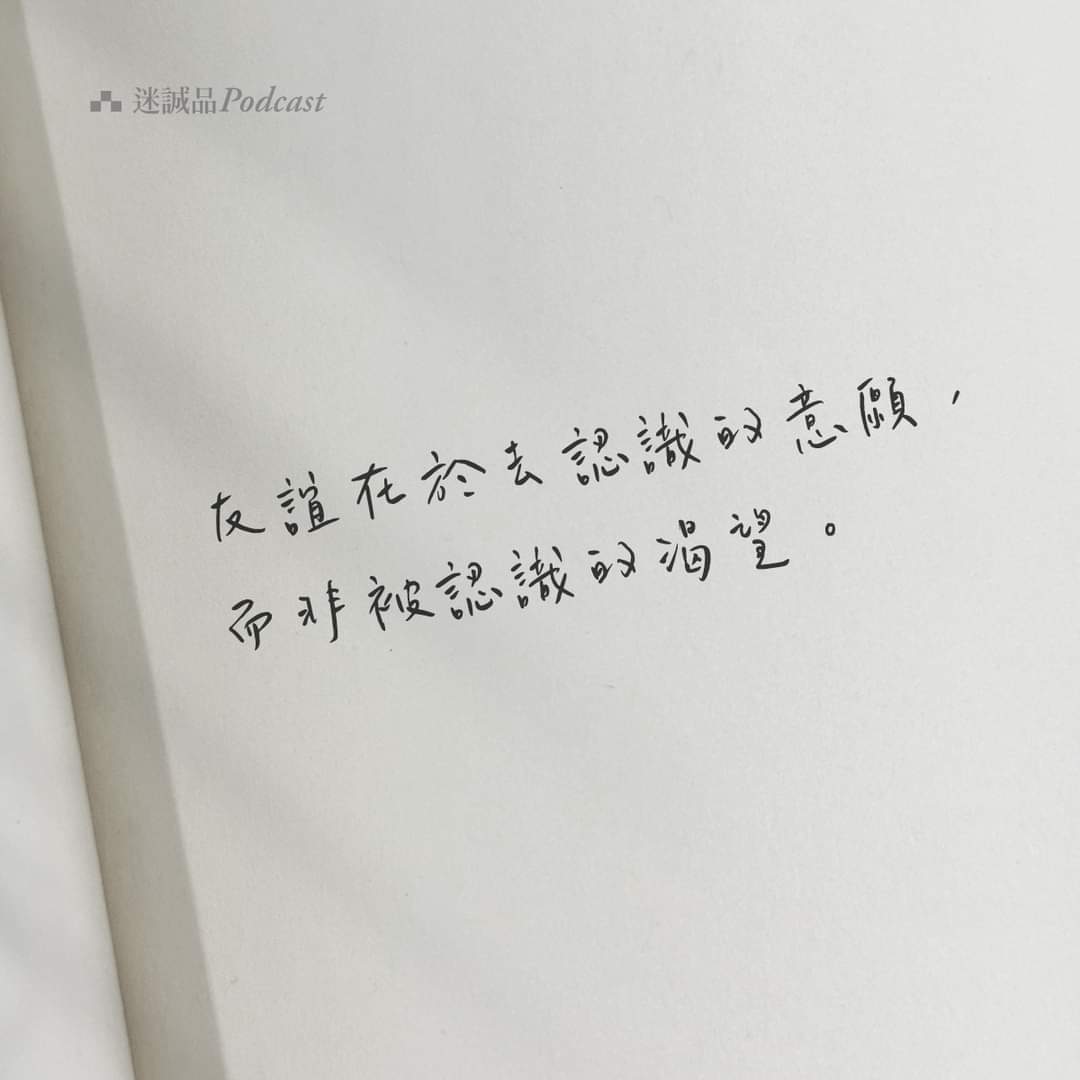 迷誠品Podcast
友誼在於去認識的意願，
而非被認識的渴望。